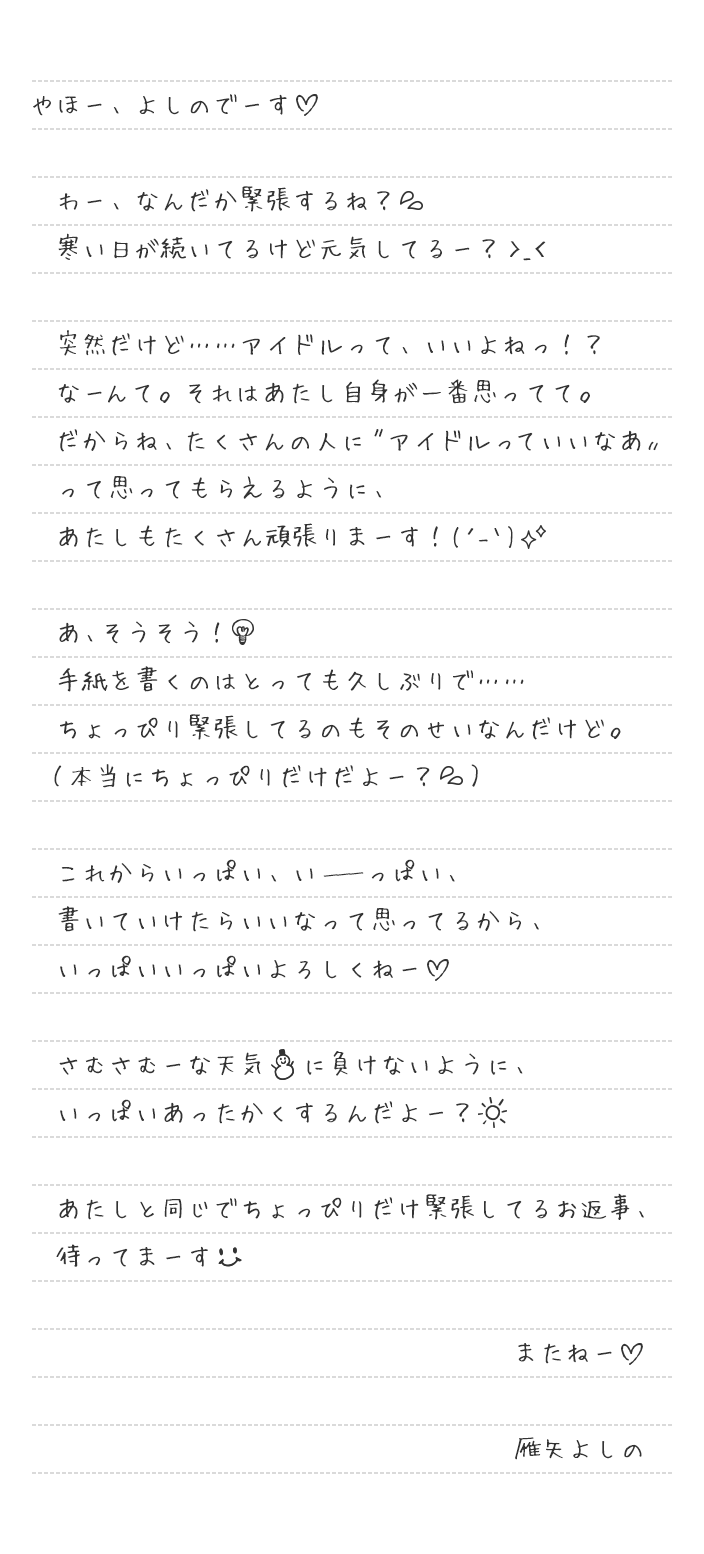 やほー、よしのでーす♡
わー、なんだか緊張するね？💦
寒い日が続いてるけど元気してるー？>_<
突然だけど……アイドルって、いいよねっ！？
なーんて。それはあたし自身が一番思ってて。
だからね、たくさんの人に〝アイドルっていいなあ〟
って思ってもらえるように、
あたしもたくさん頑張りまーす！(´-`)✨
あ、そうそう！💡
手紙を書くのはとっても久しぶりで……
ちょっぴり緊張してるのもそのせいなんだけど。
(本当にちょっぴりだけだよー？💦)
これからいっぱい、い──っぱい、
書いていけたらいいなって思ってるから、
いっぱいいっぱいよろしくねー♡
さむさむーな天気⛄に負けないように、
いっぱいあったかくするんだよー？☀
あたしと同じでちょっぴりだけ緊張してるお返事、
待ってまーす☺
またねー♡
雁矢よしの